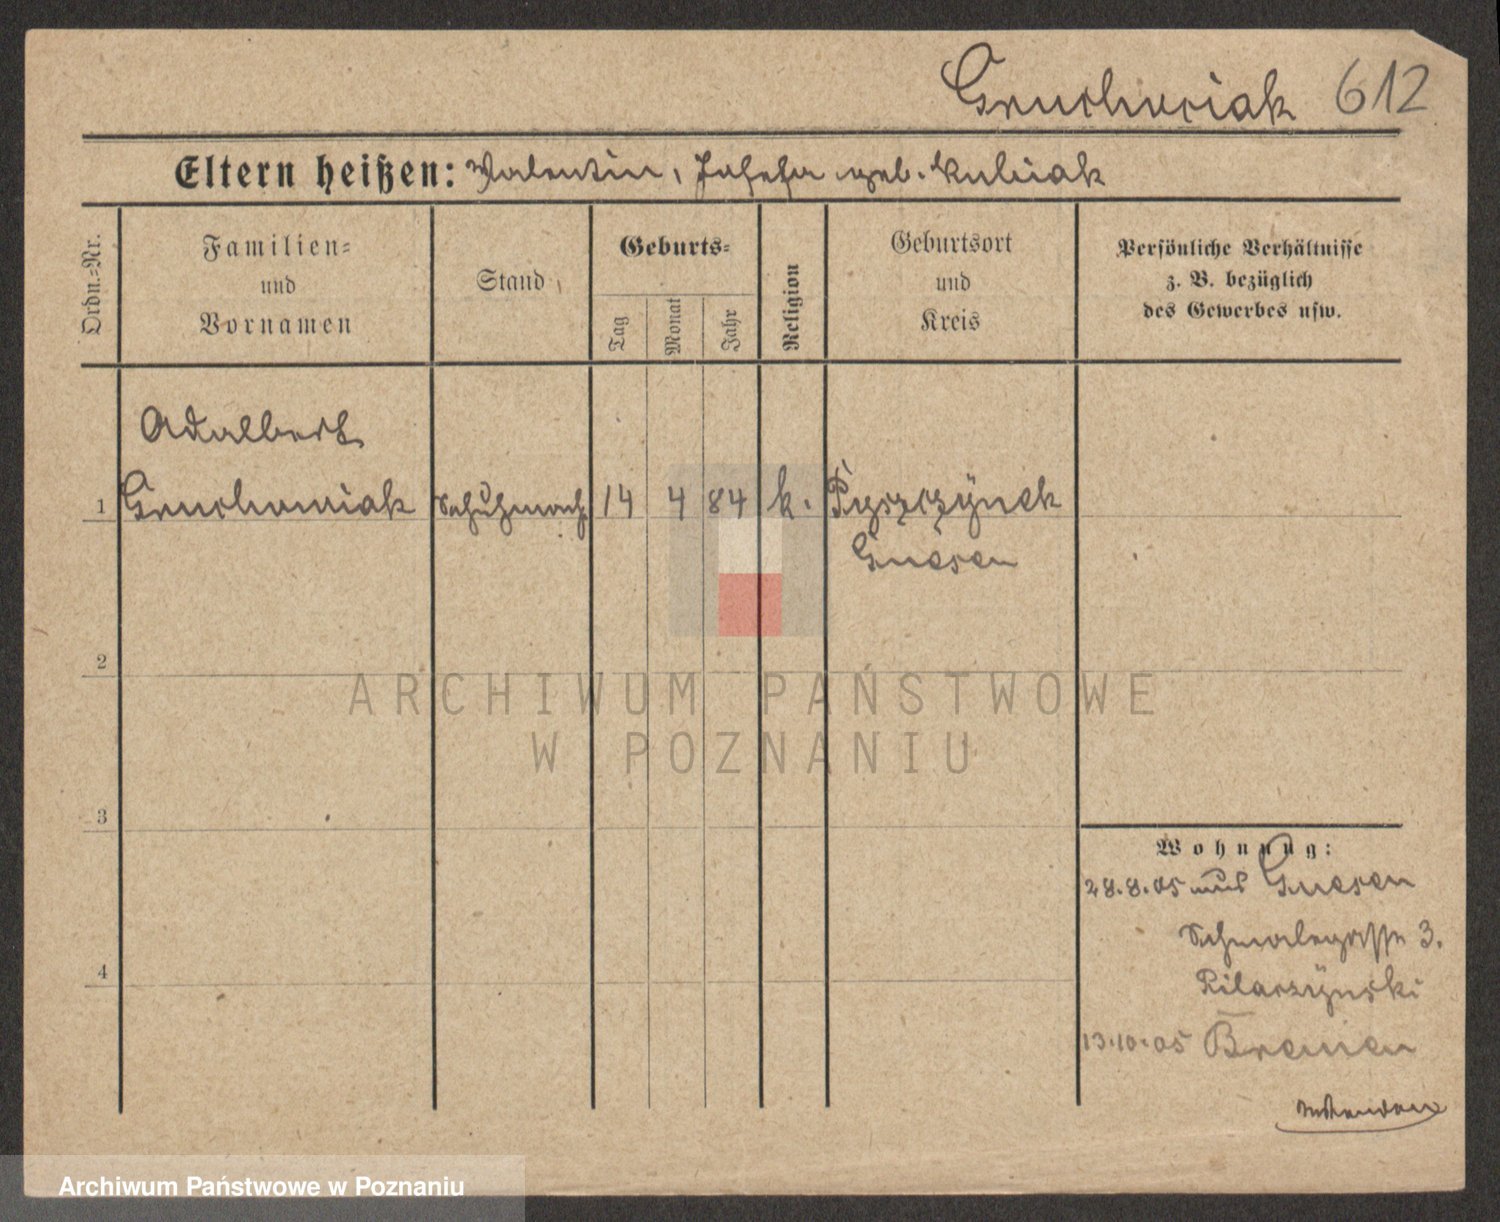 Gruchociak 612
Eltern heißen: Valentin, Josefa geb. Kubiak
Ordn.-Nr.
Familien-
und
Vornamen
Stand
Geburts-
Tag
Monat
Jahr
Religion
Geburtsort
und
Kreis
Persönliche Verhältnisse
z. B. bezüglich
des Gewerbes usw.
Adalbert
1 Gruchowiak Schuhmach 14 4 84 k. Pyszczynek
Gnesen
2
ARCHIWUM PAŃSTWOWE
W POZNANIU
3
Wohnung:
28.8.05 aus Gnesen
Schmalegasse 3.
Pilarzynski
4
13.10.05 Bremen
Archiwum Państwowe w Poznaniu